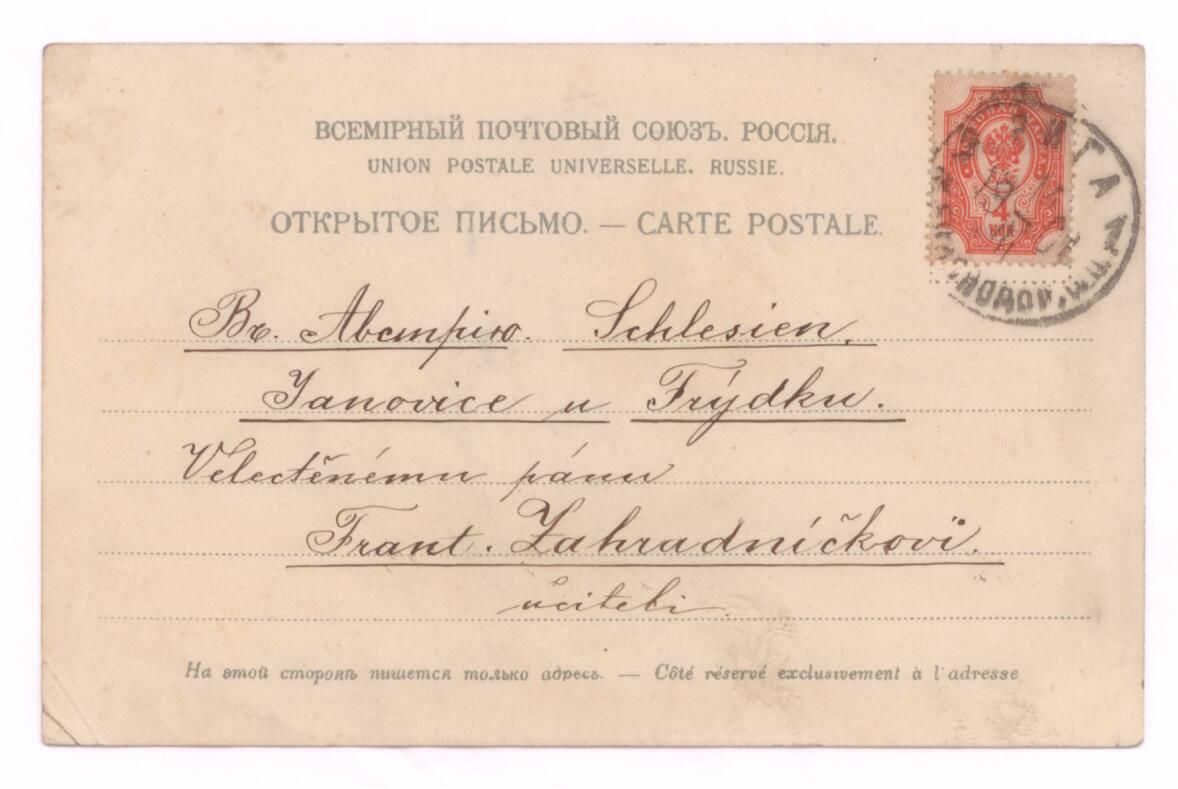 ВСЕМІРНЫЙ ПОЧТОВЫЙ СОЮЗЪ. РОССІЯ.
UNION POSTALE UNIVERSELLE. RUSSIE.
ОТКРЫТОЕ ПИСЬМО. — CARTE POSTALE.
РИГА
4
КОП.
Въ. Австрію. Schlesien.
Janovice u Frýdku.
Velectěnému pánu
Frant. Zahradníčkovi.
učiteli
На этой сторонѣ пишется только адресъ. — Côté réservé exclusivement à l'adresse